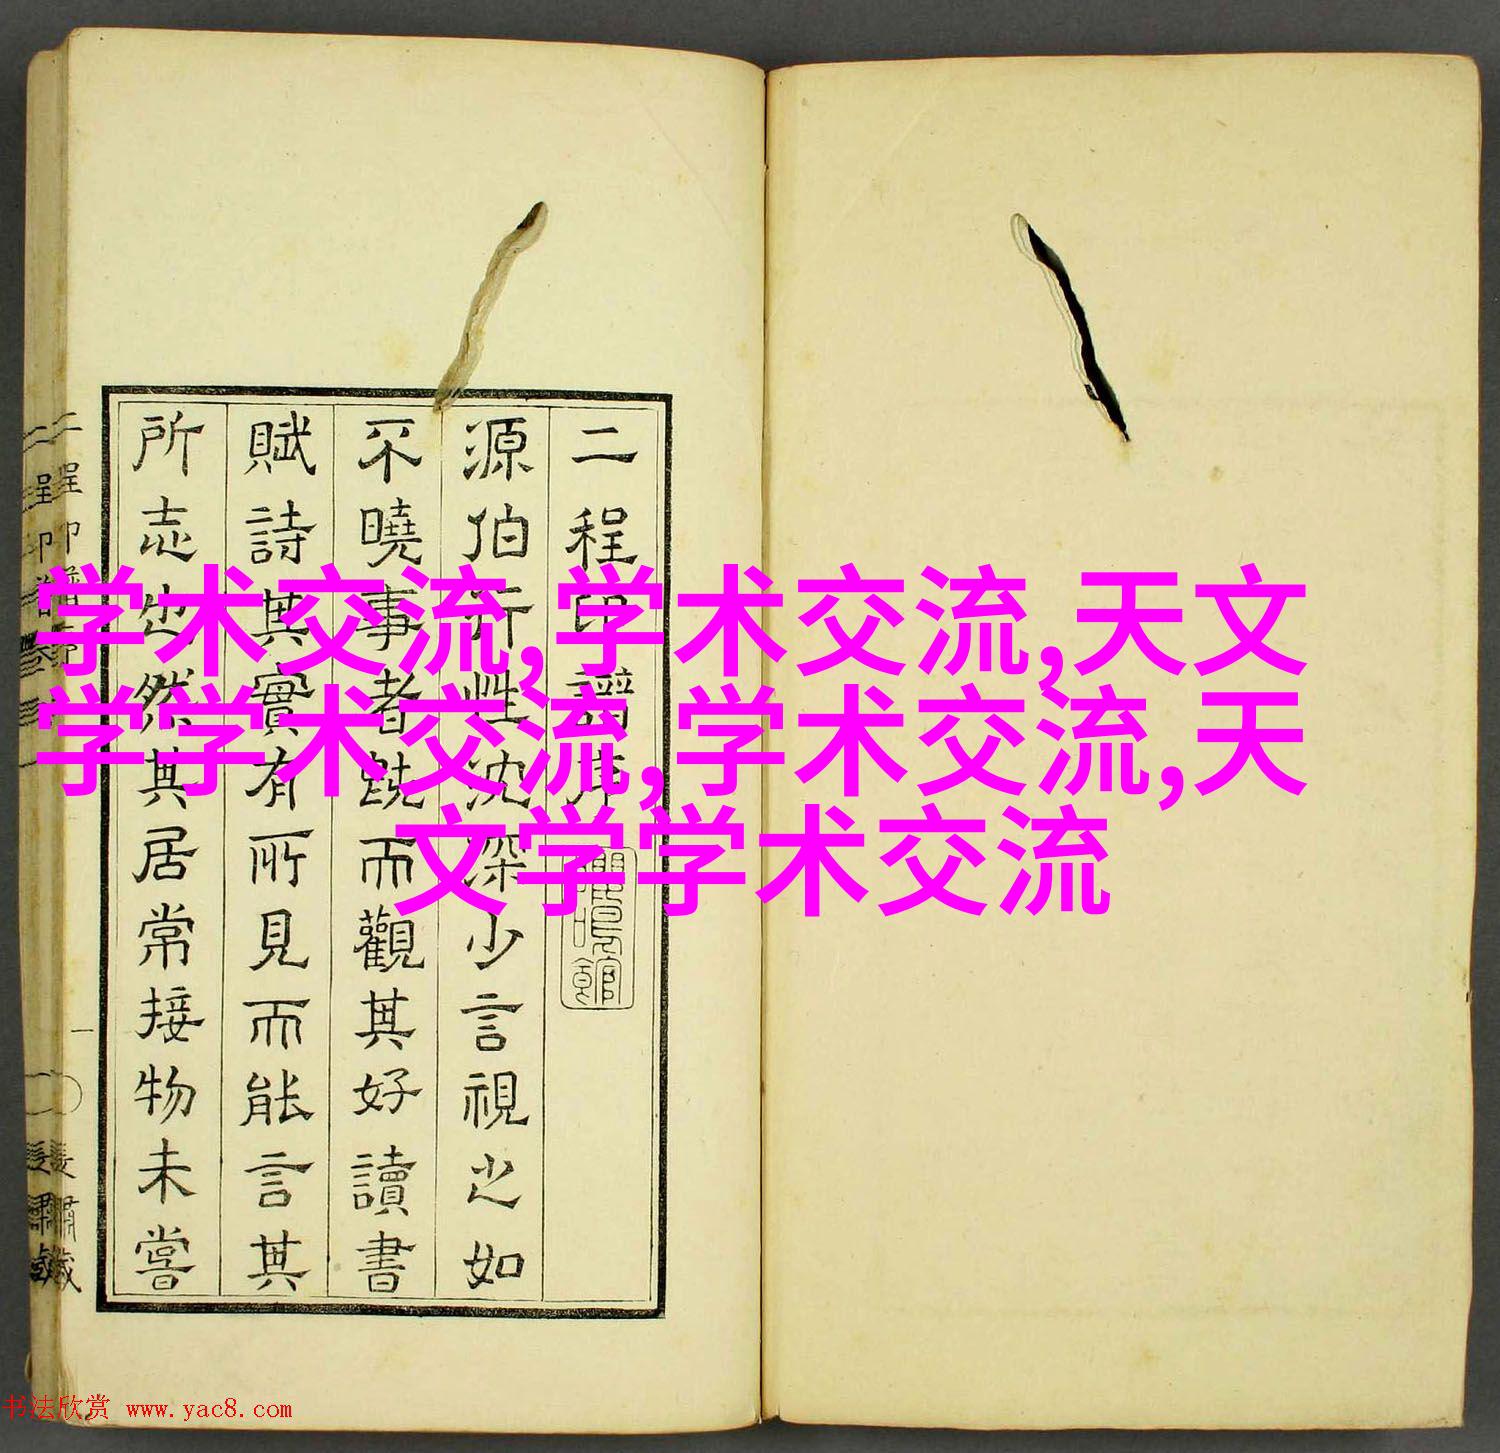 学术交流,学术交流,天文
学学术交流,学术交流,天
文学学术交流
二程印譜序
源伯行性沈深少言視之如
不曉事者既而觀其好讀書
賦詩其實有所見而能言其
所志也然其居常接物未嘗
一
书法欣赏 www.yac8.com